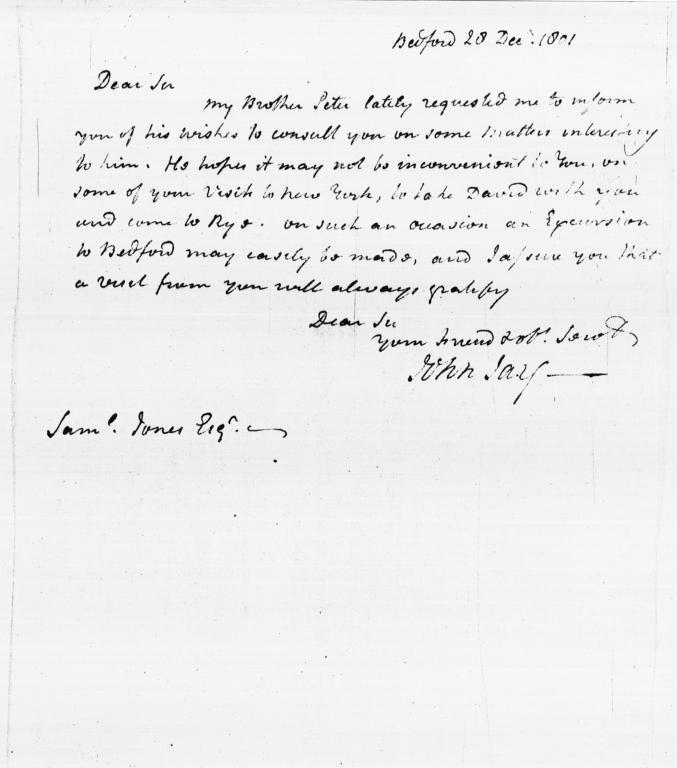 Bedford 28 Decr. 1801
Dear Sir
my Brother Peter lately requested me to inform
you of his wishes to consult you on some matters interesting
to him. He hopes it may not be inconvenient to You, on
some of your Visits to New York, to take David with you
and come to Rye. on such an occasion an Excursion
to Bedford may easily be made, and I assure you that
a visit from you will always gratify
Dear Sir
your friend & obt. Servt
John Jay
Saml. Jones Esqr.